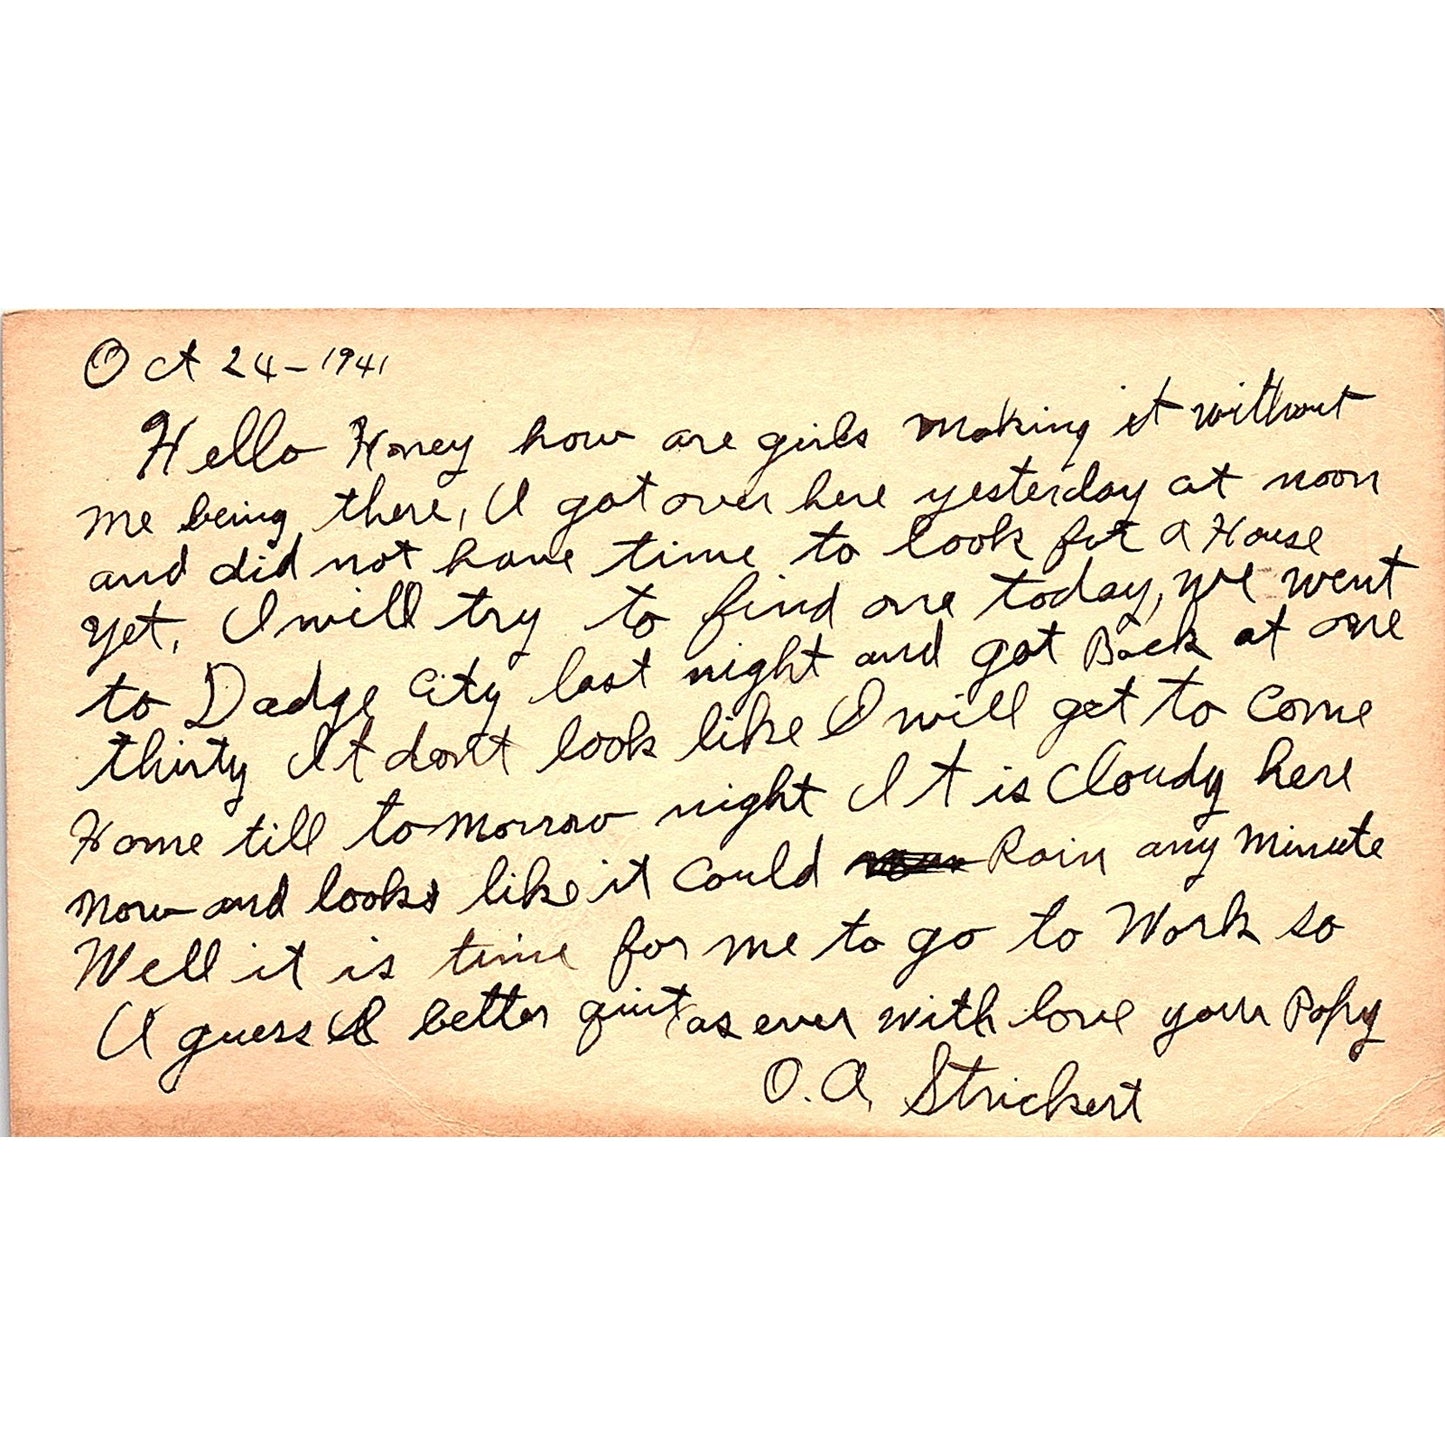 Oct 24-1941
Hello Honey how are girls making it without
me being there, I got over here yesterday at noon
and did not have time to look for a House
yet, I will try to find one today, we went
to Dadge City last night and got Back at one
thirty It dont look like I will get to come
Home till tomorrow night It is Cloudy here
now and looks like it could Rain any minute
Well it is time for me to go to Work so
I guess I better quit as ever with love your Popy
O. A. Strickert